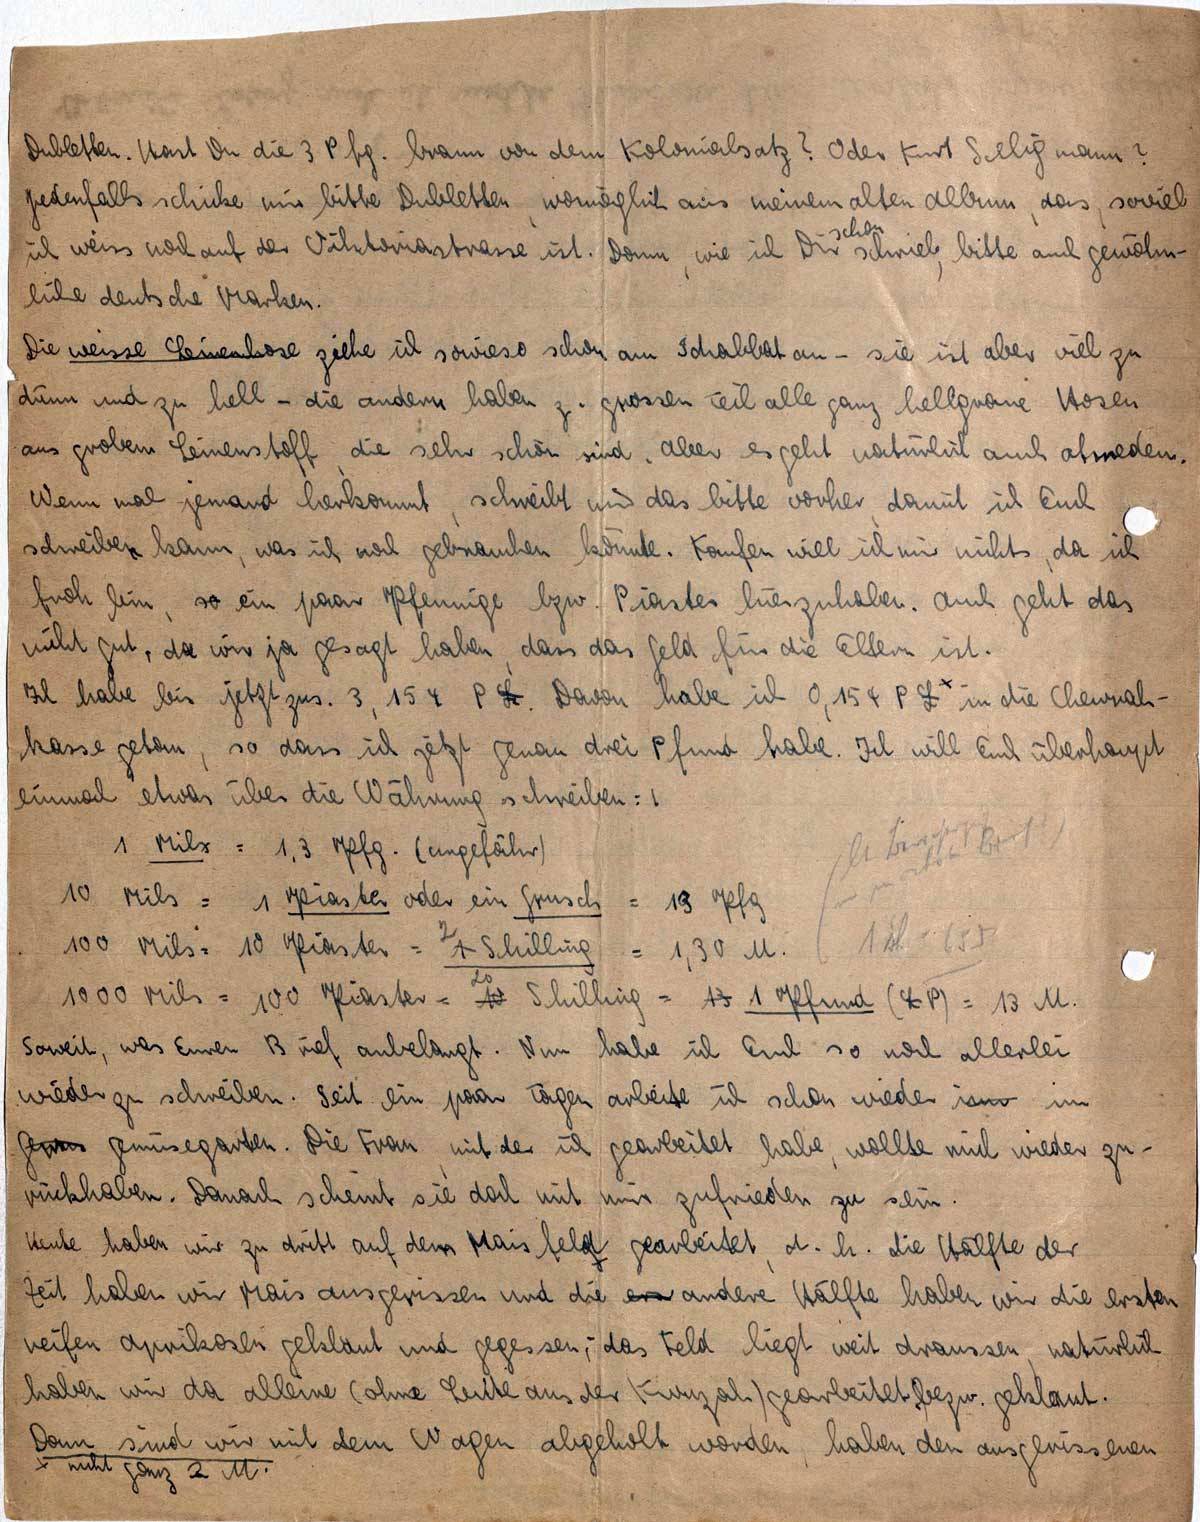 Dubletten. Hast Du die 3 Pfg. braun von dem Kolonialsatz? Oder Kurt Seligmann?
Jedenfalls schicke mir bitte Dubletten, womöglich aus meinem alten Album, das, soviel
ich weiss noch auf der Viktoriastrasse ist. Dann, wie ich Dir schon schrieb, bitte auch gewöhn-
liche deutsche Marken.
Die weisse Leinenhose ziehe ich sowieso schon am Schabbat an – sie ist aber viel zu
dünn und zu hell – die andern haben z. grossen Teil alle ganz hellgraue Hosen
aus grobem Leinenstoff, die sehr schön sind. Aber es geht natürlich auch
Wenn mal jemand herkommt, schreibt mir das bitte vorher, damit ich Euch
schreiben kann, was ich noch gebrauchen könnte. Kaufen will ich mir nichts, da ich
froh bin, so ein paar Pfennige bzw. Piaster hierzuhaben. Auch geht das
nicht gut, da wir ja gesagt haben, dass das Geld für die Eltern ist.
Ich habe bis jetzt zus. 3,154 P£. Davon habe ich 0,154 P£ x in die Chewrah-
kasse getan, so dass ich jetzt genau drei Pfund habe. Ich will Euch überhaupt
einmal etwas über die Währung schreiben:
1 Mils = 1,3 Pfg. (ungefähr)
10 Mils = 1 Piaster oder ein Grusch = 13 Pfg
100 Mils = 10 Piaster = 2 Schilling = 1,30 M.
1000 Mils = 100 Piaster = 20 Schilling = 1 Pfund (£P) = 13 M.
Soweit, was Euren Brief anbelangt. Nun habe ich Euch so noch allerlei
wieder zu schreiben. Seit ein paar Tagen arbeite ich schon wieder im
Gemüsegarten. Die Frau, mit der ich gearbeitet habe, wollte mich wieder zu-
rückhaben. Danach scheint sie doch mit mir zufrieden zu sein.
Heute haben wir zu dritt auf dem Maisfeld gearbeitet, d.h. die Hälfte der
Zeit haben wir Mais ausgerissen und die andere Hälfte haben wir die ersten
reifen Aprikosen geklaut und gegessen; das Feld liegt weit draussen, natürlich
haben wir da alleine (ohne Leute aus der Kwuzah) gearbeitet, bezw. geklaut.
Dann sind wir mit dem Wagen abgeholt worden, haben den ausgerissenen
x nicht ganz 2 M.